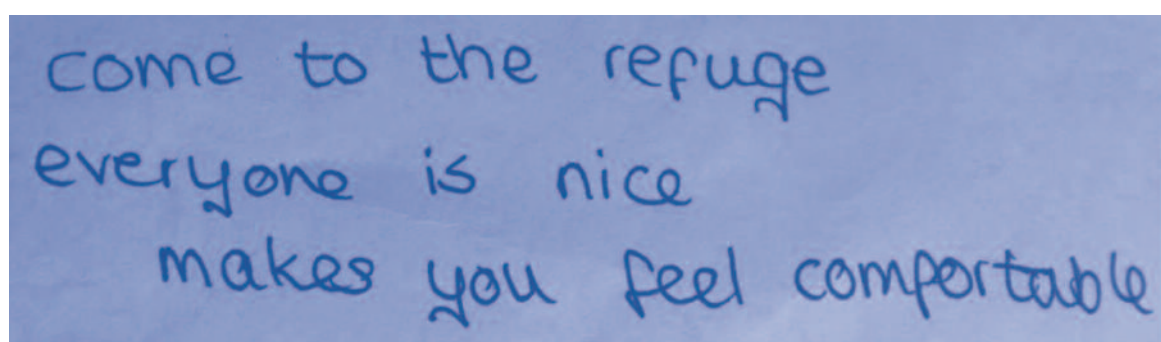 come to the refuge
everyone is nice
makes you feel comfortable